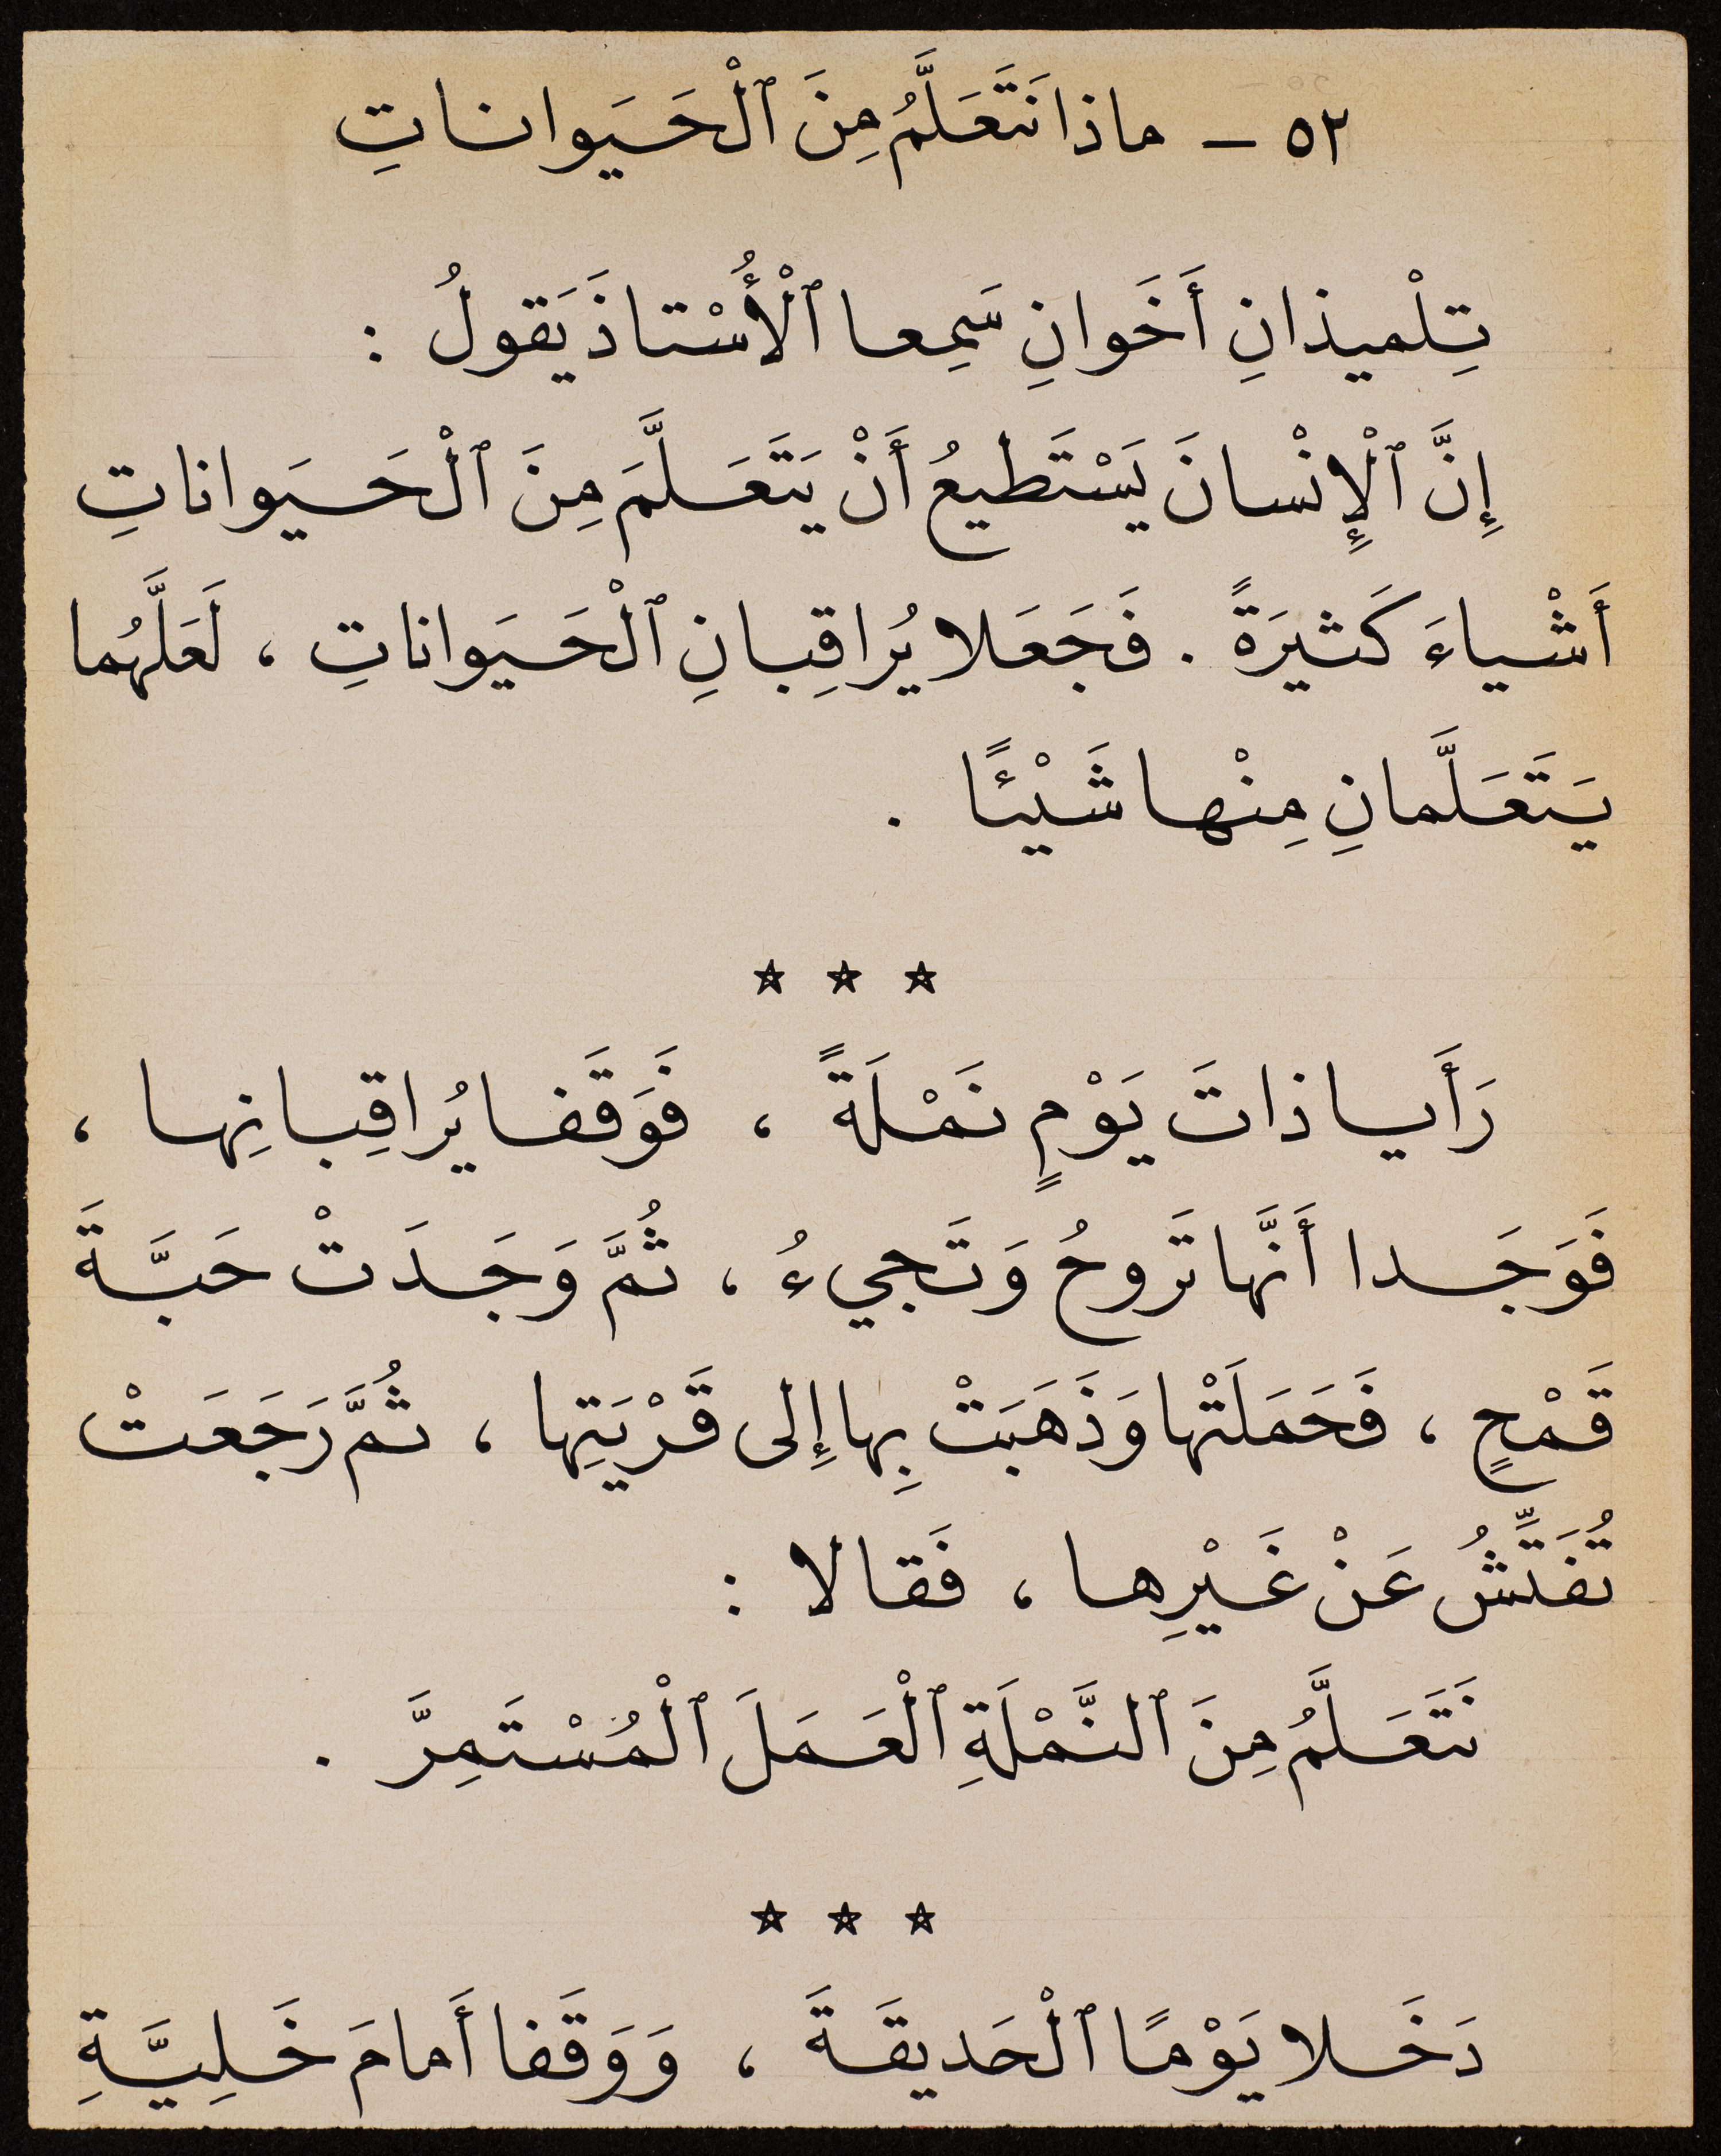 ٥٢ – ماذا نَتَعَلَّمُ مِنَ ٱلْحَيَوانـاتِ
تِلْميذانِ أَخَوانِ سَمِعا ٱلْأُسْتاذَ يَقولُ :
إِنَّ ٱلْإِنْسانَ يَسْتَطيعُ أَنْ يَتَعَلَّمَ مِنَ ٱلْحَيَواناتِ
أَشْياءَ كَثيرَةً . فَجَعَلا يُراقِبانِ ٱلْحَيَواناتِ ، لَعَلَّهُما
يَتَعَلَّمانِ مِنْها شَيْئًا .
* * *
رَأَيا ذاتَ يَوْمٍ نَمْلَةً ، فَوَقَفا يُراقِبانِها ،
فَوَجَدا أَنَّها تَروحُ وَتَجيءُ ، ثُمَّ وَجَدَتْ حَبَّةَ
قَمْحٍ ، فَحَمَلَتْها وَذَهَبَتْ بِها إِلى قَرْيَتِها ، ثُمَّ رَجَعَتْ
تُفَتِّشُ عَنْ غَيْرِها ، فَقالا :
نَتَعَلَّمُ مِنَ ٱلنَّمْلَةِ ٱلْعَمَلَ ٱلْمُسْتَمِرَّ .
* * *
دَخَلا يَوْمًا ٱلْحَديقَةَ ، وَوَقَفا أَمامَ خَلِيَّةِ